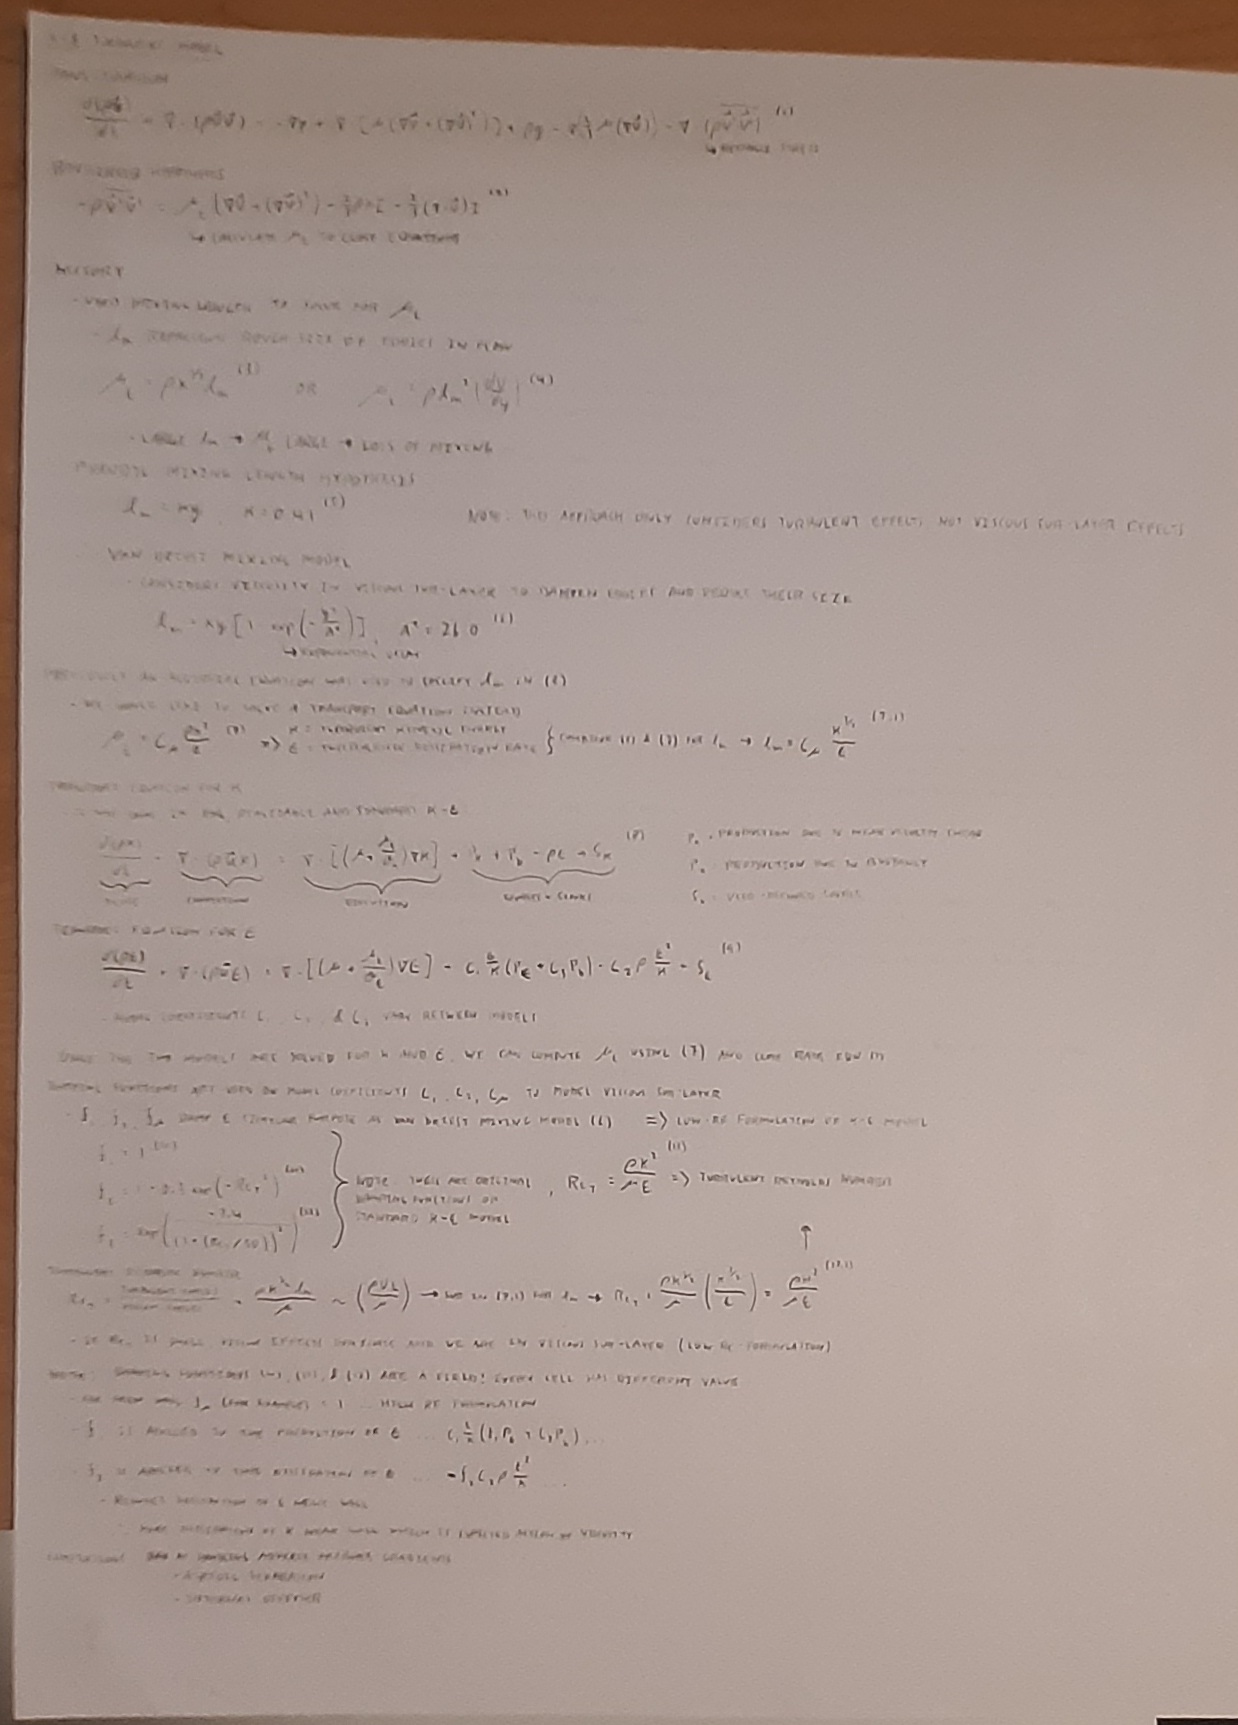 K-ε TURBULENT MODEL
RANS EQUATION
∂(ρū)/∂t + ∇·(ρūū) = -∇p + ∇·[μ(∇ū+(∇ū)ᵀ)] + ρg - ∇(⅔μ(∇ū)) - ∇·(ρv'v') (1)
↳ REYNOLDS STRESS
HYPOTHESIS
-ρv'v' = μₜ(∇ū+(∇ū)ᵀ) - ⅔ρkI - ⅔(∇·ū)I (2)
↳ CALCULATE μₜ TO CLOSE EQUATIONS
HISTORY
- USED MIXING LENGTH TO SOLVE FOR μₜ
- lₘ REPRESENTS ROUGH SIZE OF EDDIES IN FLOW
μₜ = ρk^½ lₘ (3) OR μₜ = ρlₘ²|∂U/∂y| (4)
- LARGE lₘ → μₜ LARGE → LOTS OF MIXING
MIXING LENGTH HYPOTHESIS
lₘ = κy, κ = 0.41 (5) NOTE: THIS APPROACH ONLY CONSIDERS TURBULENT EFFECTS NOT VISCOUS SUB-LAYER EFFECTS
VAN DRIEST MIXING MODEL
- CONSIDERS VISCOSITY IN VISCOUS SUB-LAYER TO DAMPEN EDDIES AND REDUCE THEIR SIZE
lₘ = κy[1 - exp(-y⁺/A⁺)], A⁺ = 26.0 (6)
↳ EXPONENTIAL DECAY
PREVIOUSLY AN ALGEBRAIC EQUATION WAS USED TO lₘ IN (6)
- WE WOULD LIKE TO SOLVE A TRANSPORT EQUATION INSTEAD
μₜ = C_μ ρk²/ε (7) => K = TURBULENT KINETIC ENERGY
ε = TURBULENT DISSIPATION RATE } COMBINE (3) & (7) FOR lₘ → lₘ = C_μ k^(3/2)/ε (7.1)
TRANSPORT EQUATION FOR K
∂(ρk)/∂t + ∇·(ρūk) = ∇·[(μ + μₜ/σₖ)∇k] + Pₖ + P_b - ρε + Sₖ (8)
Pₖ = PRODUCTION DUE TO MEAN VELOCITY SHEAR
P_b = PRODUCTION DUE TO BUOYANCY
Sₖ = USER-DEFINED SOURCE
CONVECTION DIFFUSION SOURCES + SINKS
TRANSPORT EQUATION FOR ε
∂(ρε)/∂t + ∇·(ρūε) = ∇·[(μ + μₜ/σ_ε)∇ε] + C₁ ε/k (Pₖ + C₃P_b) - C₂ρ ε²/k + S_ε (9)
- MODEL COEFFICIENTS C₁, C₂, & C₃ VARY BETWEEN MODELS
ONCE THE TWO MODELS ARE SOLVED FOR K AND ε, WE CAN COMPUTE μₜ USING (7) AND CLOSE RANS EQN (1)
DAMPING FUNCTIONS ARE USED ON MODEL COEFFICIENTS C₁, C₂, C_μ TO MODEL VISCOUS SUB-LAYER
- f₁, f₂, f_μ DAMP ε (SIMILAR PURPOSE AS VAN DRIEST MIXING MODEL (6) => LOW-RE FORMULATION OF K-ε MODEL
f₁ = 1 (10)
f₂ = 1 - 0.3 exp(-Reₜ²)
f_μ = exp(-3.4/(1+(Reₜ/50))²) (12)
NOTE: THESE ARE ORIGINAL
DAMPING FUNCTIONS OF
STANDARD K-ε MODEL
, Reₜ = ρk²/με (13) => TURBULENT REYNOLDS NUMBER
TURBULENT REYNOLDS NUMBER
Reₜ = TURBULENT FORCES/VISCOUS FORCES = ρk^½ lₘ/μ ~ (ρUL/μ) → SUB IN (7.1) FOR lₘ → Reₜ = ρk^½/μ (k^(3/2)/ε) = ρk²/με (13.1)
- IF Reₜ IS SMALL, VISCOUS EFFECTS DOMINATE AND WE ARE IN VISCOUS SUB-LAYER (LOW-RE FORMULATION)
NOTE: DAMPING FUNCTIONS (10), (11), & (12) ARE A FIELD! EVERY CELL HAS DIFFERENT VALUE
- FAR FROM WALL f_μ (FOR EXAMPLE) = 1 ... HIGH RE FORMULATION
- f₁ IS APPLIED TO THE PRODUCTION OF ε ... C₁ ε/k (f₁Pₖ + C₃P_b)...
- f₂ IS APPLIED TO THE DISSIPATION OF ε ... -f₂C₂ρ ε²/k ...
- REDUCES DISSIPATION OF ε NEAR WALL
∴ MORE DISSIPATION OF K NEAR WALL WHICH IS EXPECTED ACTION OF VISCOSITY
LIMITATIONS: BAD AT HANDLING ADVERSE PRESSURE GRADIENTS
- AIRFOIL SEPARATION